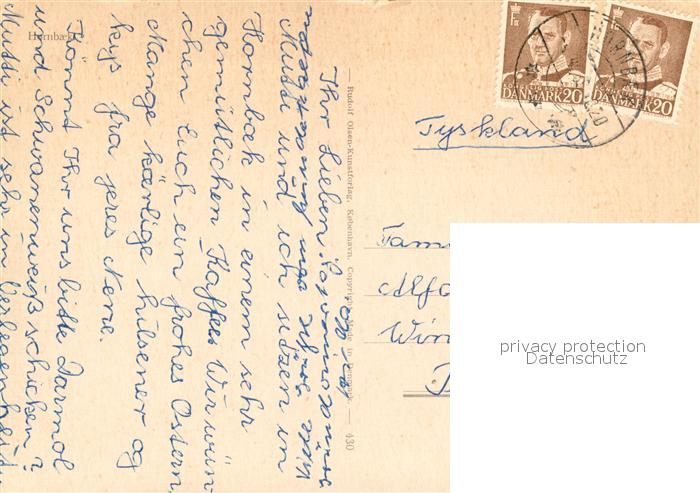 Hornbæk
Ihr Lieben
Mutti und ich sitzen in
Hornbæk in einem sehr
gemütlichen Kaffee. Wir wün-
schen Euch ein frohes Ostern.
Mange kærlige hilsener og
kys fra jeres Nene.
Könnt Ihr uns bitte Darmol
und Schwanenweiß schicken?
Mutti ist sehr in Verlegenheit
— Rudolf Olsen-Kunstforlag, København. Copyright. Made in Denmark — 430
DANMARK 20
DANMARK 20
Tyskland
Fam
Alfo
privacy protection
Datenschutz